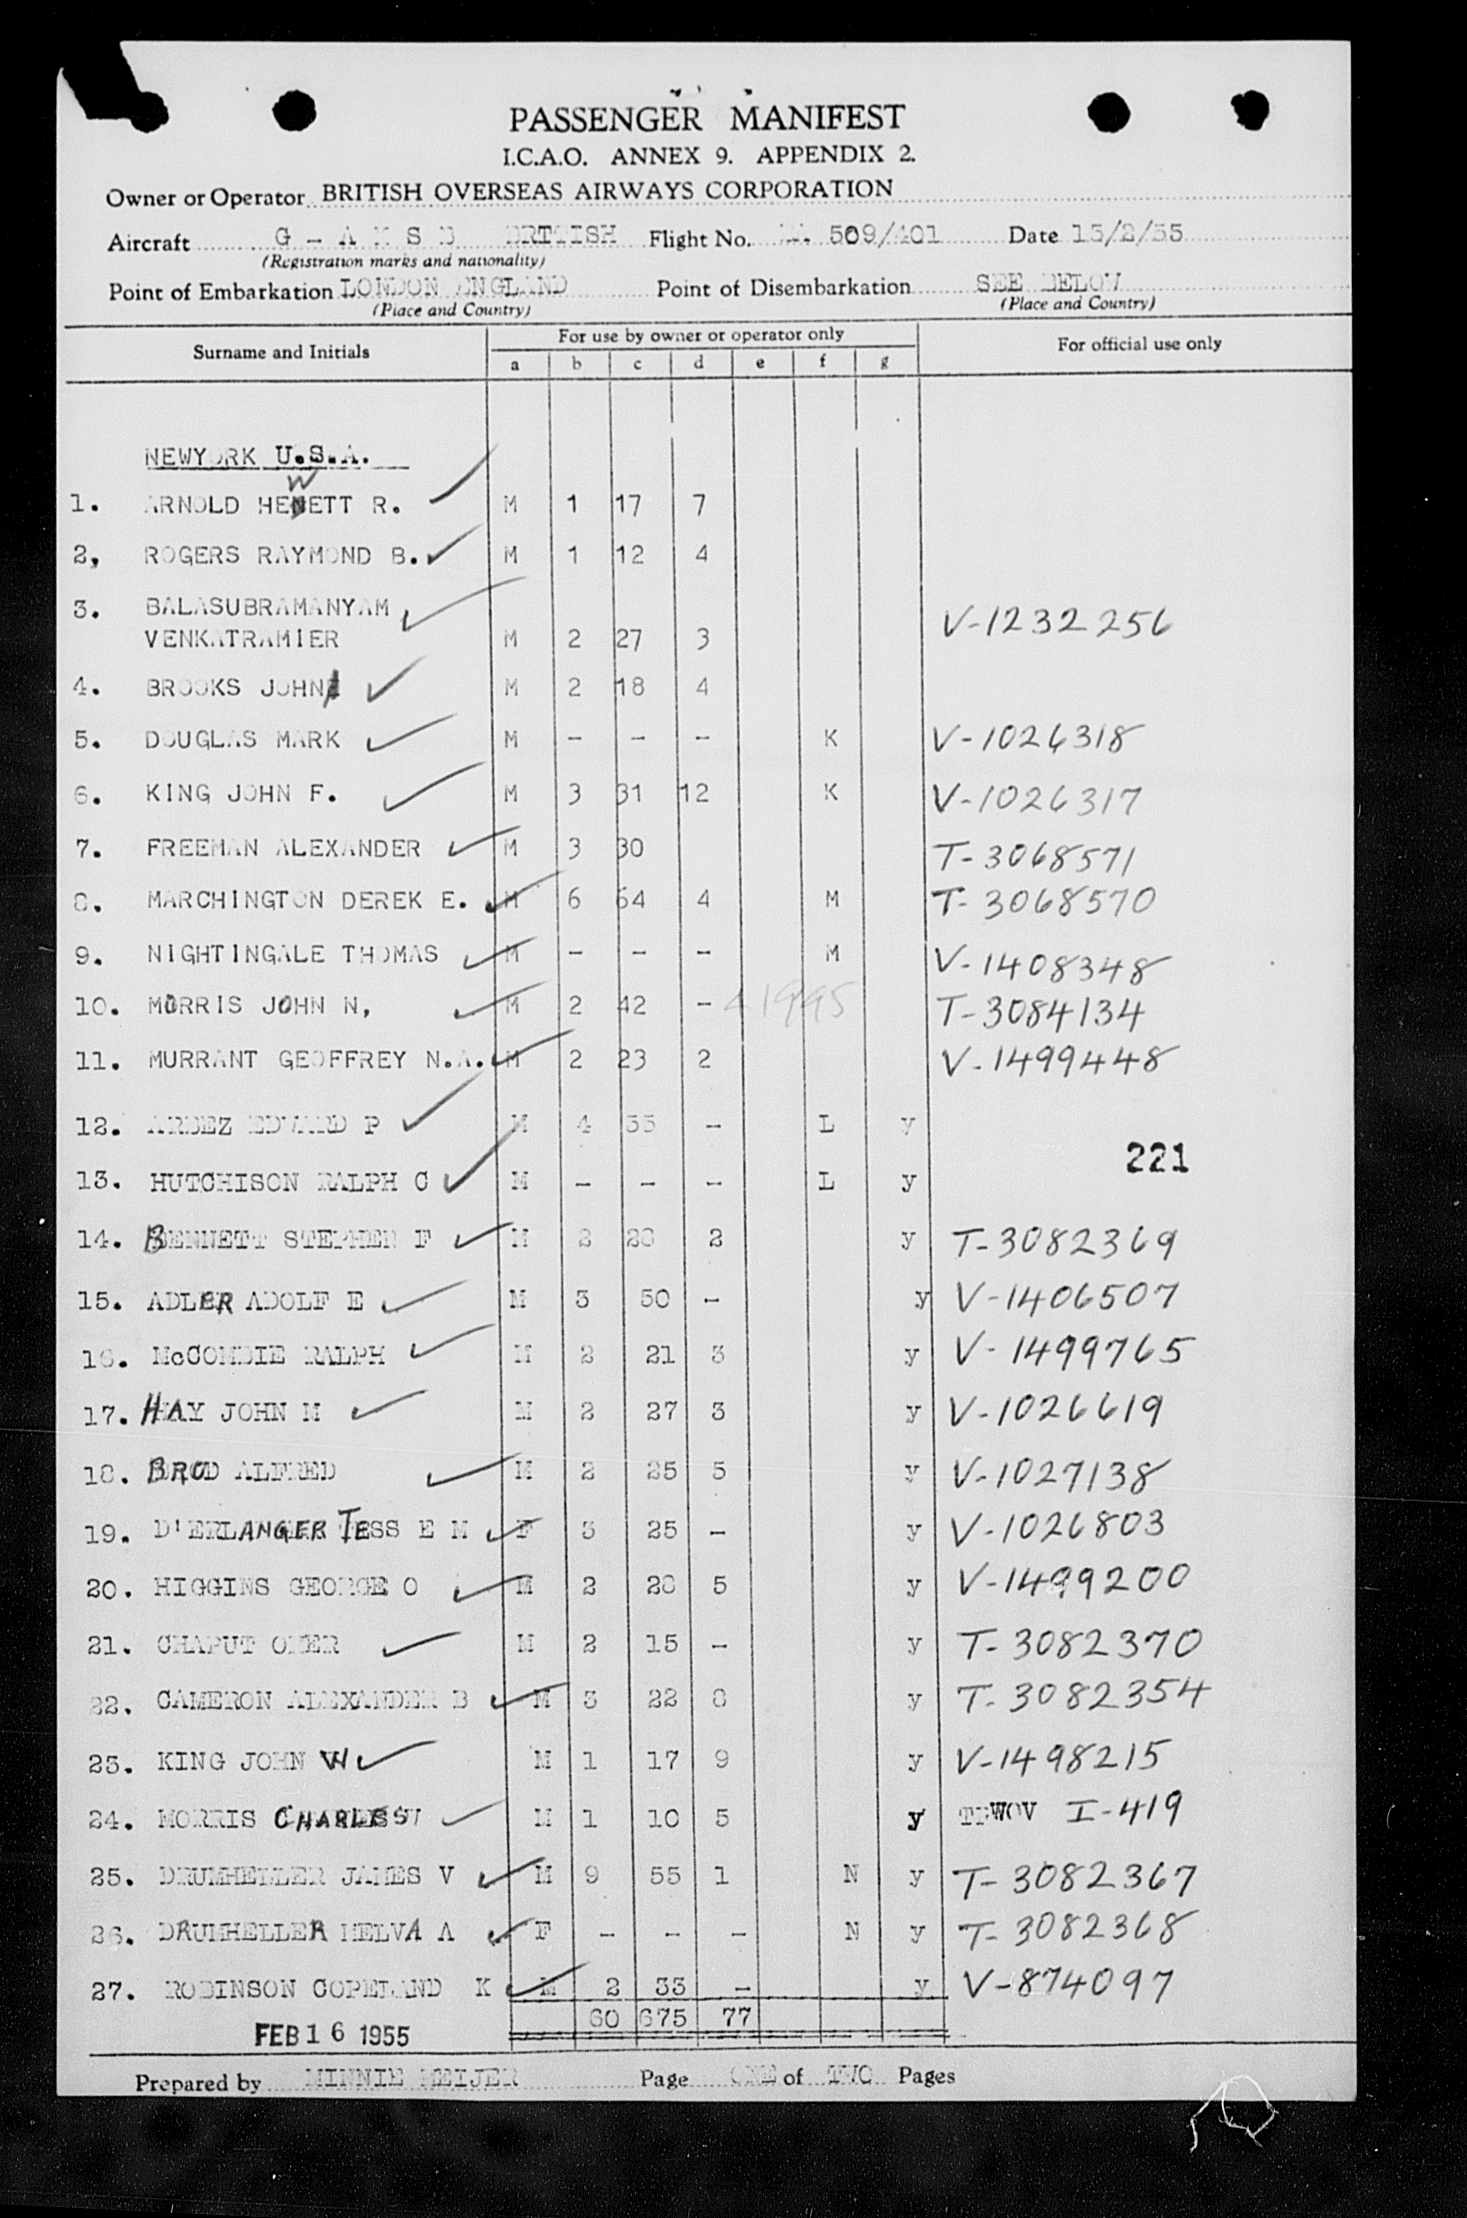 PASSENGER MANIFEST
I.C.A.O. ANNEX 9. APPENDIX 2.
Owner or Operator BRITISH OVERSEAS AIRWAYS CORPORATION
Aircraft G - A BRITISH Flight No. 509/401 Date 15/2/55
(Registration marks and nationality)
Point of Embarkation LONDON ENGLAND Point of Disembarkation SEE BELOW
(Place and Country) (Place and Country)
Surname and Initials For use by owner or operator only For official use only
a b c d e f g
NEWYORK U.S.A.
W
1. ARNOLD HENETT R. M 1 17 7
2, ROGERS RAYMOND B. M 1 12 4
3. BALASUBRAMANYAM
VENKATRAMIER M 2 27 3 V-1232256
4. BROOKS JOHN M 2 18 4
5. DOUGLAS MARK M - - - K V-1026318
6. KING JOHN F. M 3 31 12 K V-1026317
7. FREEMAN ALEXANDER M 3 30 T-3068571
8. MARCHINGTON DEREK E. M 6 64 4 M T-3068570
9. NIGHTINGALE THOMAS M - - - M V-1408348
10. MORRIS JOHN N, M 2 42 - T-3084134
11. MURRANT GEOFFREY N.A. M 2 23 2 V-1499448
12. ARBEZ EDWARD P M 4 55 - L y
221
13. HUTCHISON RALPH C M - - - L y
14. BENNETT STEPHEN F M 2 28 2 y T-3082369
15. ADLER ADOLF E M 3 50 - y V-1406507
16. McCOMBIE RALPH M 2 21 3 y V-1499765
17. HAY JOHN M M 2 27 3 y V-1026619
18. BROD ALFRED M 2 25 5 y V-1027138
19. D'ERLANGER TESS E M F 3 25 - y V-1026803
20. HIGGINS GEORGE O M 2 28 5 y V-1499200
21. CHAPUT OMER M 2 15 - y T-3082370
22. CAMERON ALEXANDER B M 3 22 8 y T-3082354
23. KING JOHN W M 1 17 9 y V-1498215
24. MORRIS CHARLES W M 1 10 5 y TRWOV I-419
25. DRUMHELLER JAMES V M 9 55 1 N y T-3082367
26. DRUMHELLER MELVA A F - - - N y T-3082368
27. ROBINSON COPELAND K M 2 33 - y V-874097
60 675 77
FEB 16 1955
Prepared by MINNIE MEIJER Page ONE of TWO Pages